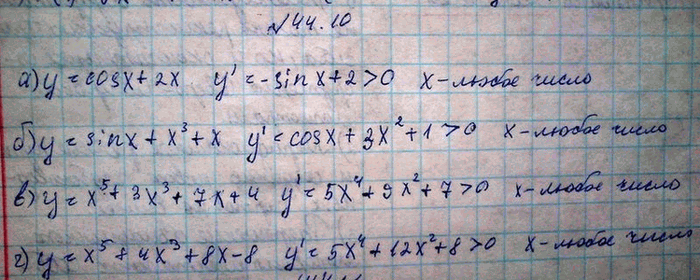 №44.10
а) y = cosx + 2x y' = -sinx + 2 > 0 x - любое число
б) y = sinx + x³ + x y' = cosx + 3x² + 1 > 0 x - любое число
в) y = x⁵ + 3x³ + 7x + 4 y' = 5x⁴ + 9x² + 7 > 0 x - любое число
г) y = x⁵ + 4x³ + 8x - 8 y' = 5x⁴ + 12x² + 8 > 0 x - любое число